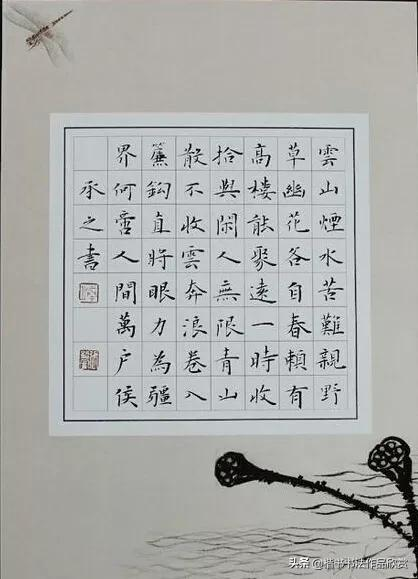 雲山煙水苦難親野
草幽花各自春賴有
高樓能聚遠一時收
拾與閑人無限青山
散不收雲奔浪卷入
簾鈎直將眼力為疆
界何啻人間萬戶侯
承之書
头条 @楷书书法作品欣赏